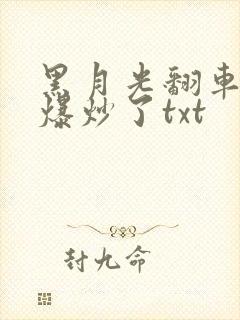 黑月光翻車
爆炒了txt
封九命